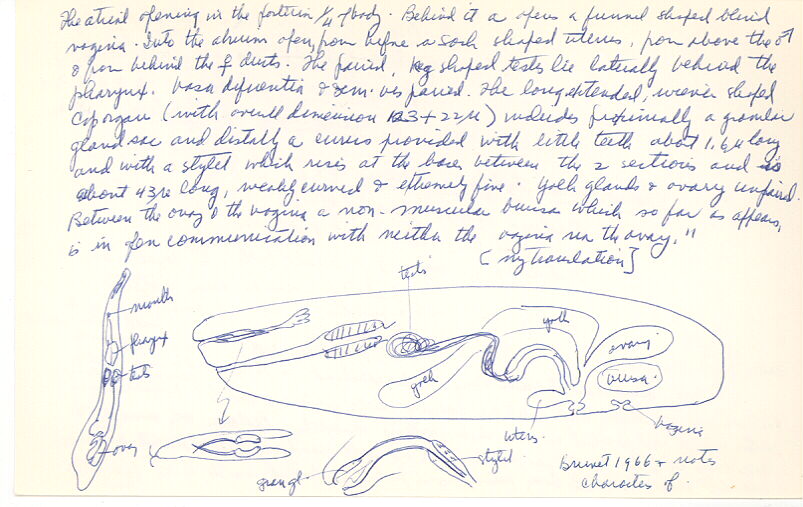 The atrial opening in the posterior 1/4 of body. Behind it a opens a funnel shaped blind
vagina. Into the atrium open from before a sack shaped uterus, from above the ♂
& from behind the ♀ ducts. The paired, egg shaped testes lie laterally behind the
pharynx. Vasa deferentia & sem. ves paired. The long extended, shaped
cop organ (with overall dimension 123 + 22 μ) includes proximally a granular
gland sac and distally a cirrus provided with little teeth about 1,6 μ long
and with a stylet which rises at the base between the 2 sections and is
about 43 μ long, weakly curved & extremely fine. Yolk glands & ovary unpaired.
Between the ovary & the vagina a non-muscular bursa which so far as appears,
is in open communication with neither the vagina nor the ovary."
[my translation]
mouth
pharynx
testis
ovary
testis
yolk
yolk
ovary
bursa
uterus
vagina
gran gl.
stylet
Brunet 1966 + notes
characters of